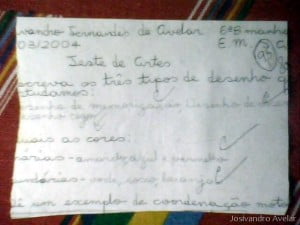 vandro Fernandes de Avelar 6ªB manhã
03/2004 E M
Teste de Artes
screva os três tipos de desenho q
tudamos:
senho de memorização, Desenho de
esenho cego
uais as cores:
árias - amarelo, azul e vermelho
undárias - verde, roxo, laranja
ê um exemplo de coordenação moto
Josivandro Avelar